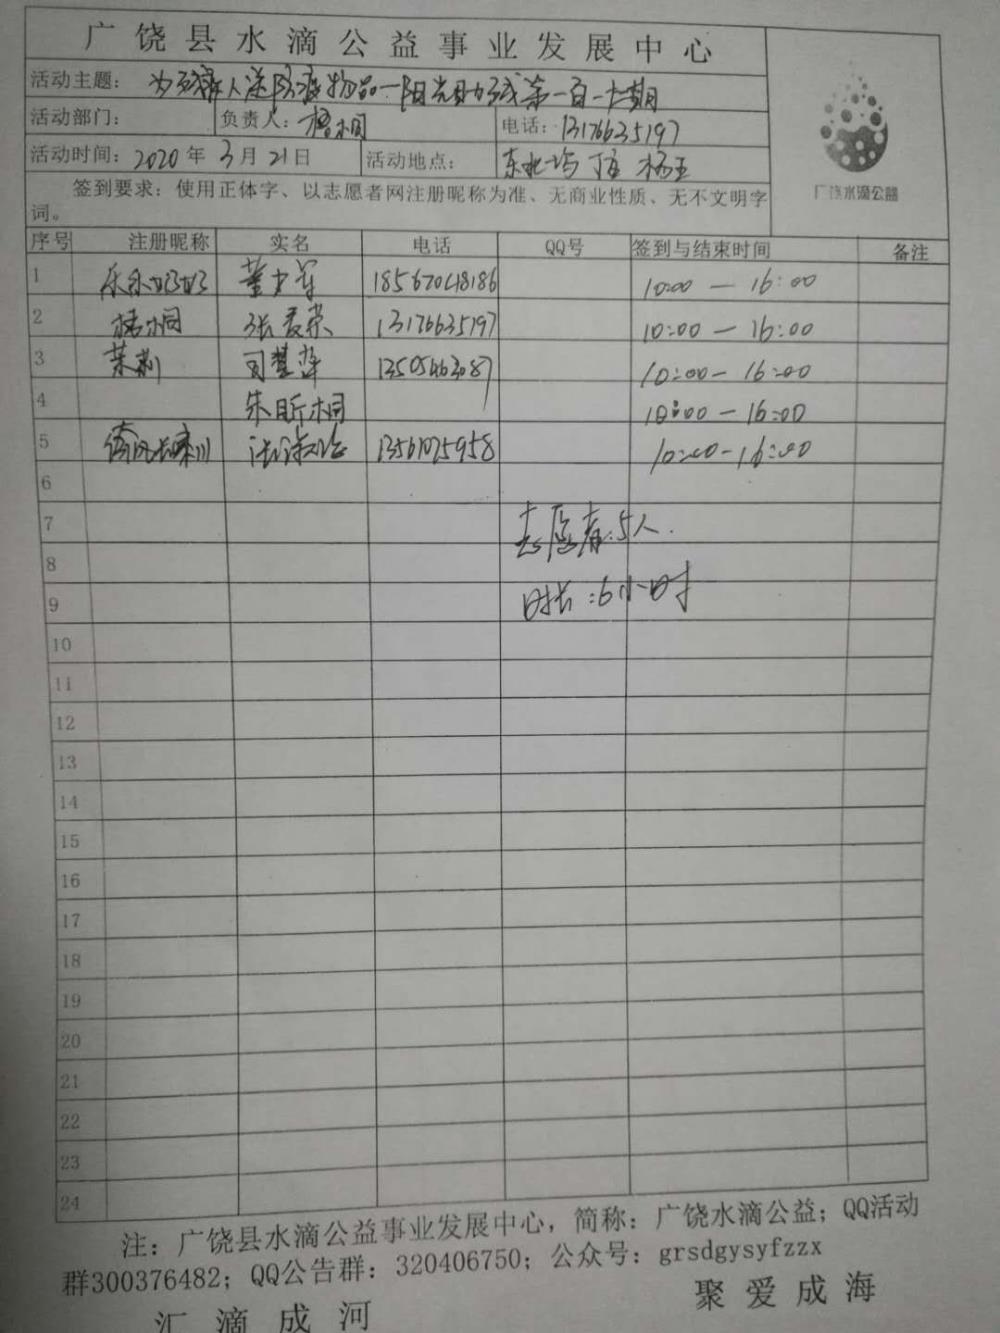 广饶县水滴公益事业发展中心
活动主题：为残疾人送防疫物品—阳光助残第一百一十期
活动部门： 负责人：梧桐 电话：13176635197
活动时间：2020年3月21日 活动地点：东北坞 丁庄 杨王
签到要求：使用正体字、以志愿者网注册昵称为准、无商业性质、无不文明字
词。
广饶水滴公益
序号 注册昵称 实名 电话 QQ号 签到与结束时间 备注
1 18567048186 10:00 — 16:00
2 梧桐 张爱荣 13176635197 10:00 — 16:00
3 茉莉 13505463087 10:00 — 16:00
4 朱昕桐 10:00 — 16:00
5 13561025958 10:00 - 16:00
6
7 志愿者:5人.
8
9 时长:6小时
10
11
12
13
14
15
16
17
18
19
20
21
22
23
24
注：广饶县水滴公益事业发展中心，简称：广饶水滴公益；QQ活动
群300376482；QQ公告群：320406750；公众号：grsdgysyfzzx
汇滴成河 聚爱成海